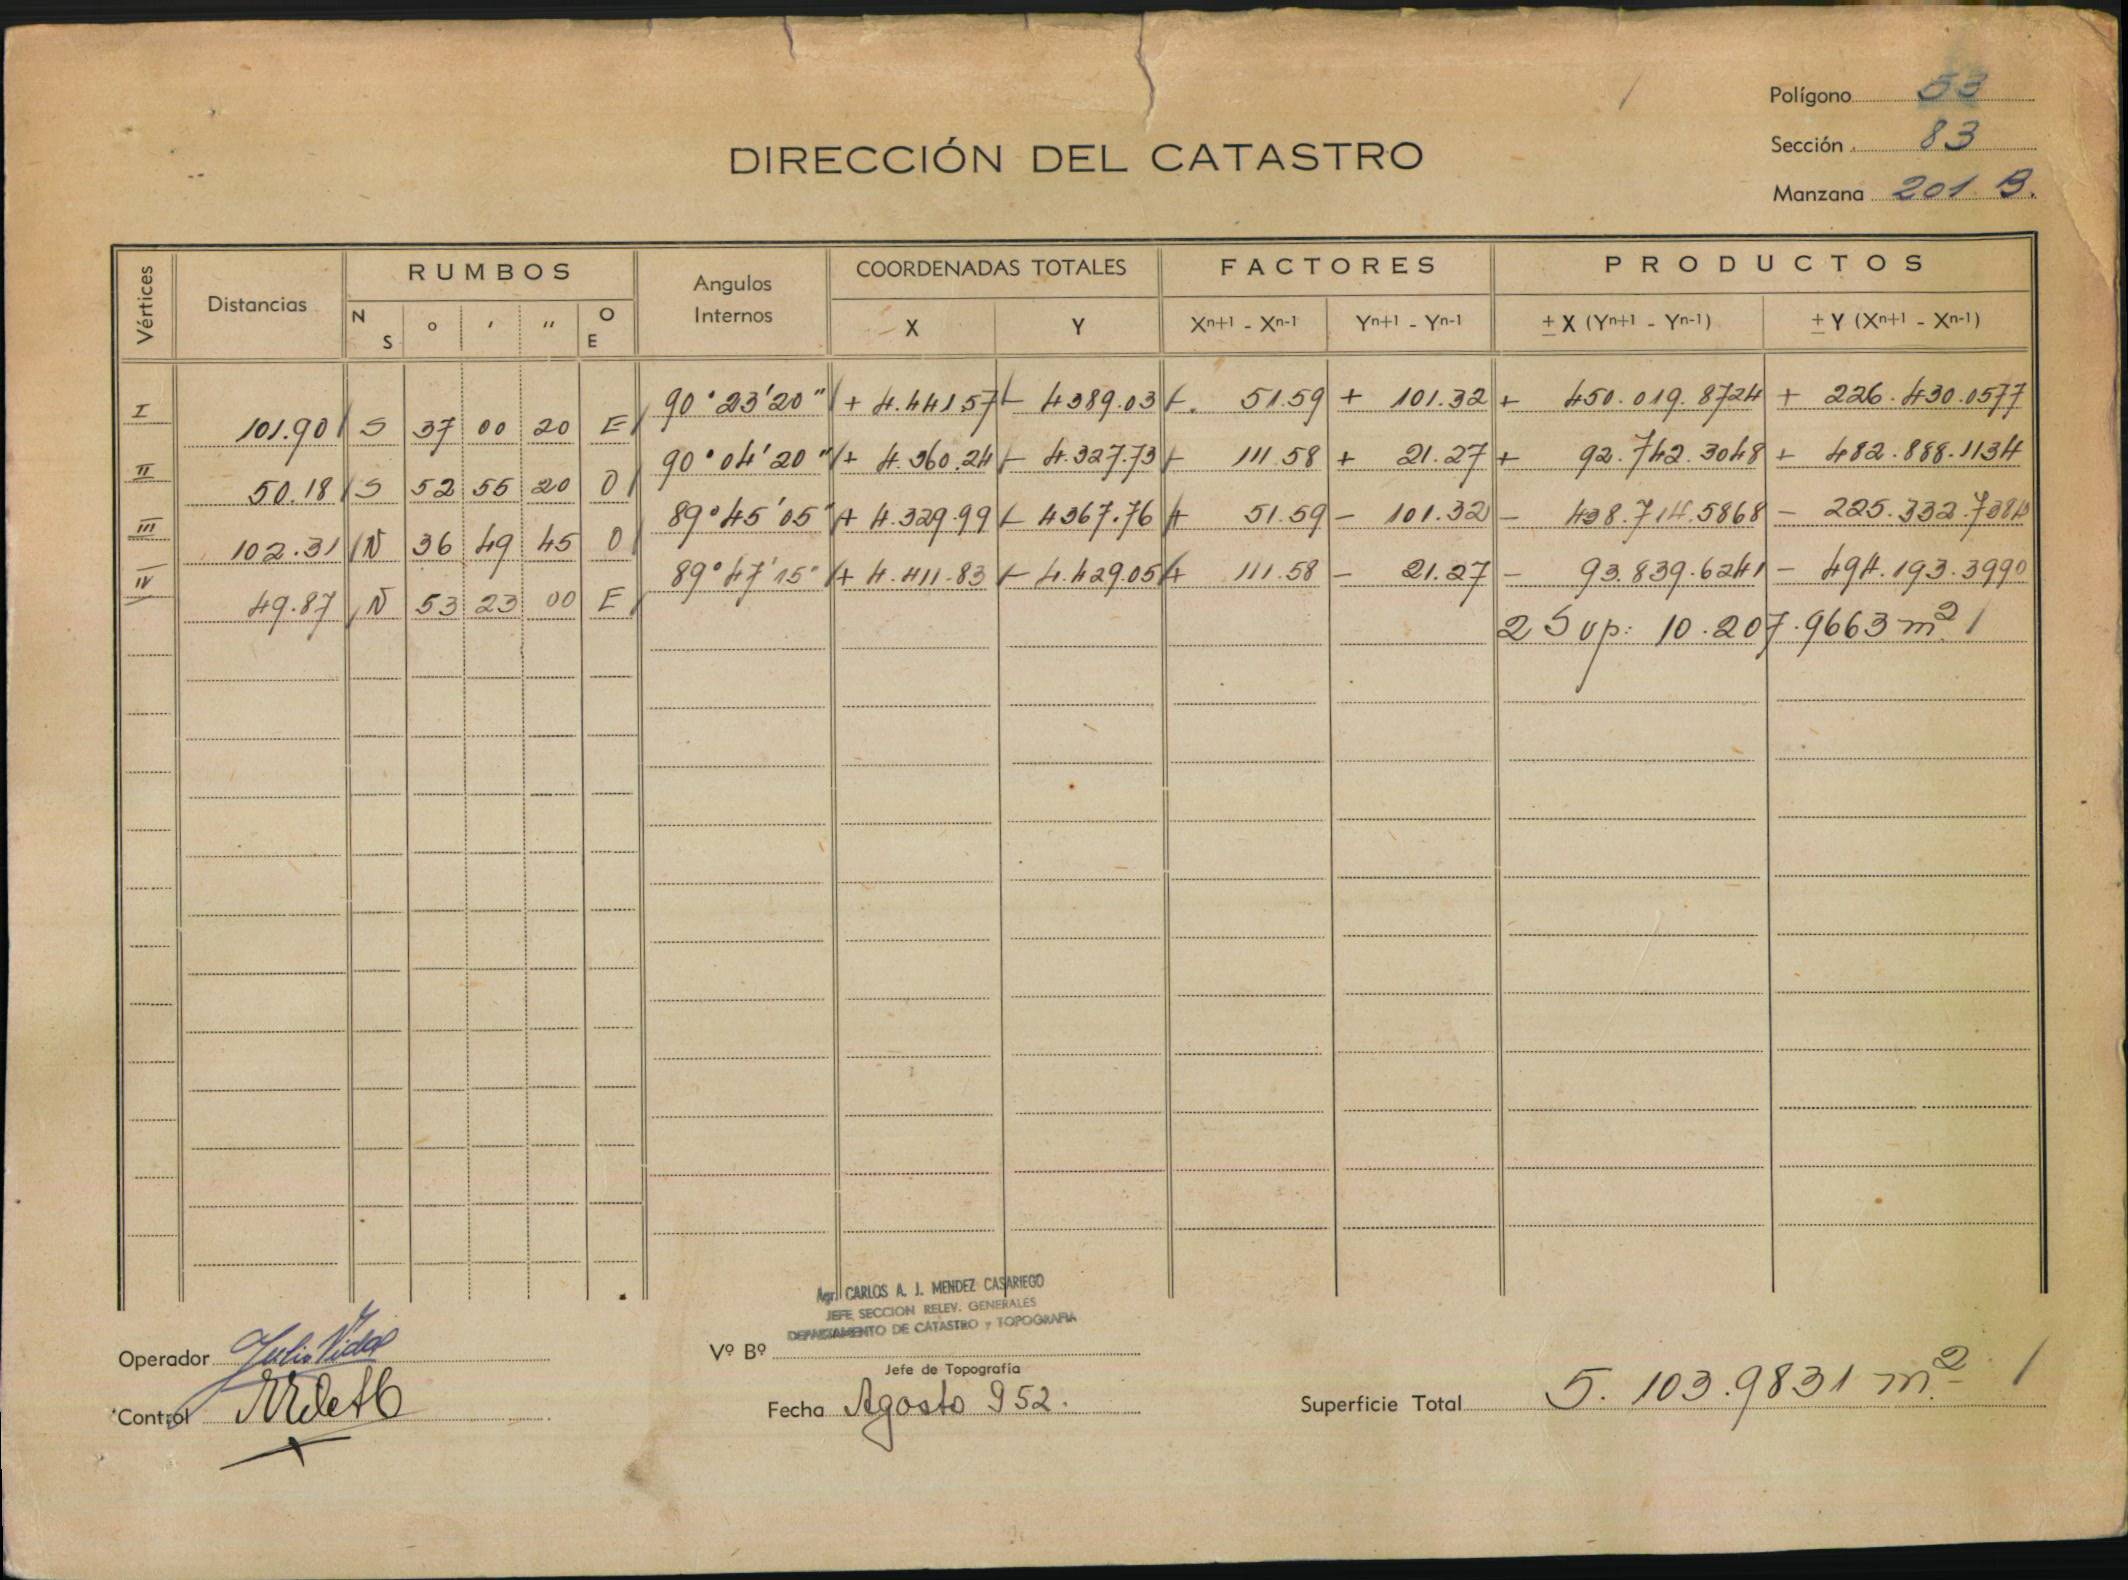 Polígono 53
Sección 83
Manzana 201 B.
DIRECCIÓN DEL CATASTRO
Vértices Distancias RUMBOS Angulos Internos COORDENADAS TOTALES FACTORES PRODUCTOS
N S ° ' '' O E X Y Xn+1 - Xn-1 Yn+1 - Yn-1 ± X (Yn+1 - Yn-1) ± Y (Xn+1 - Xn-1)
I 90°23'20" + 4.441.57 - 4389.03 - 51.59 + 101.32 + 450.019.8724 + 226.430.0577
101.90 S 37 00 20 E
II 90°04'20" + 4.360.24 - 4.327.73 - 111.58 + 21.27 + 92.742.3048 + 482.888.1134
50.18 S 52 55 20 O
III 89°45'05" + 4.329.99 - 4367.76 + 51.59 - 101.32 - 438.714.5868 - 225.332.7384
102.31 N 36 49 45 O
IV 89°47'15" + 4.411.83 - 4.429.05 + 111.58 - 21.27 - 93.839.6241 - 494.193.3990
49.87 N 53 23 00 E
2 Sup: 10.207.9663 m2
Agr. CARLOS A. J. MENDEZ CASARIEGO
JEFE SECCION RELEV. GENERALES
DEPARTAMENTO DE CATASTRO y TOPOGRAFIA
Operador Julio Vidal
Vº Bº
Jefe de Topografía
Control
Fecha Agosto 952.
Superficie Total 5.103.9831 m2